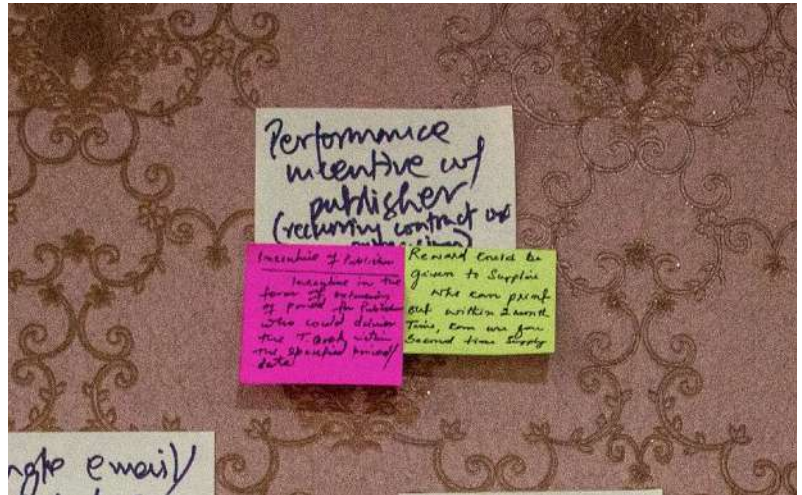 Performance
incentive w/
publisher
(recurring contract w/
Incentive of Publisher
Incentive in the
form of extension
of period for Publisher
who could deliver
the T. Book within
the specified period/
date
Reward could be
given to Supplier
who can print
out within 2 month
Time,
Second time Supply
email/